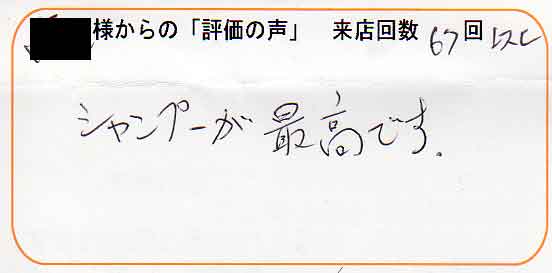 様からの「評価の声」 来店回数 67回
シャンプーが最高です.